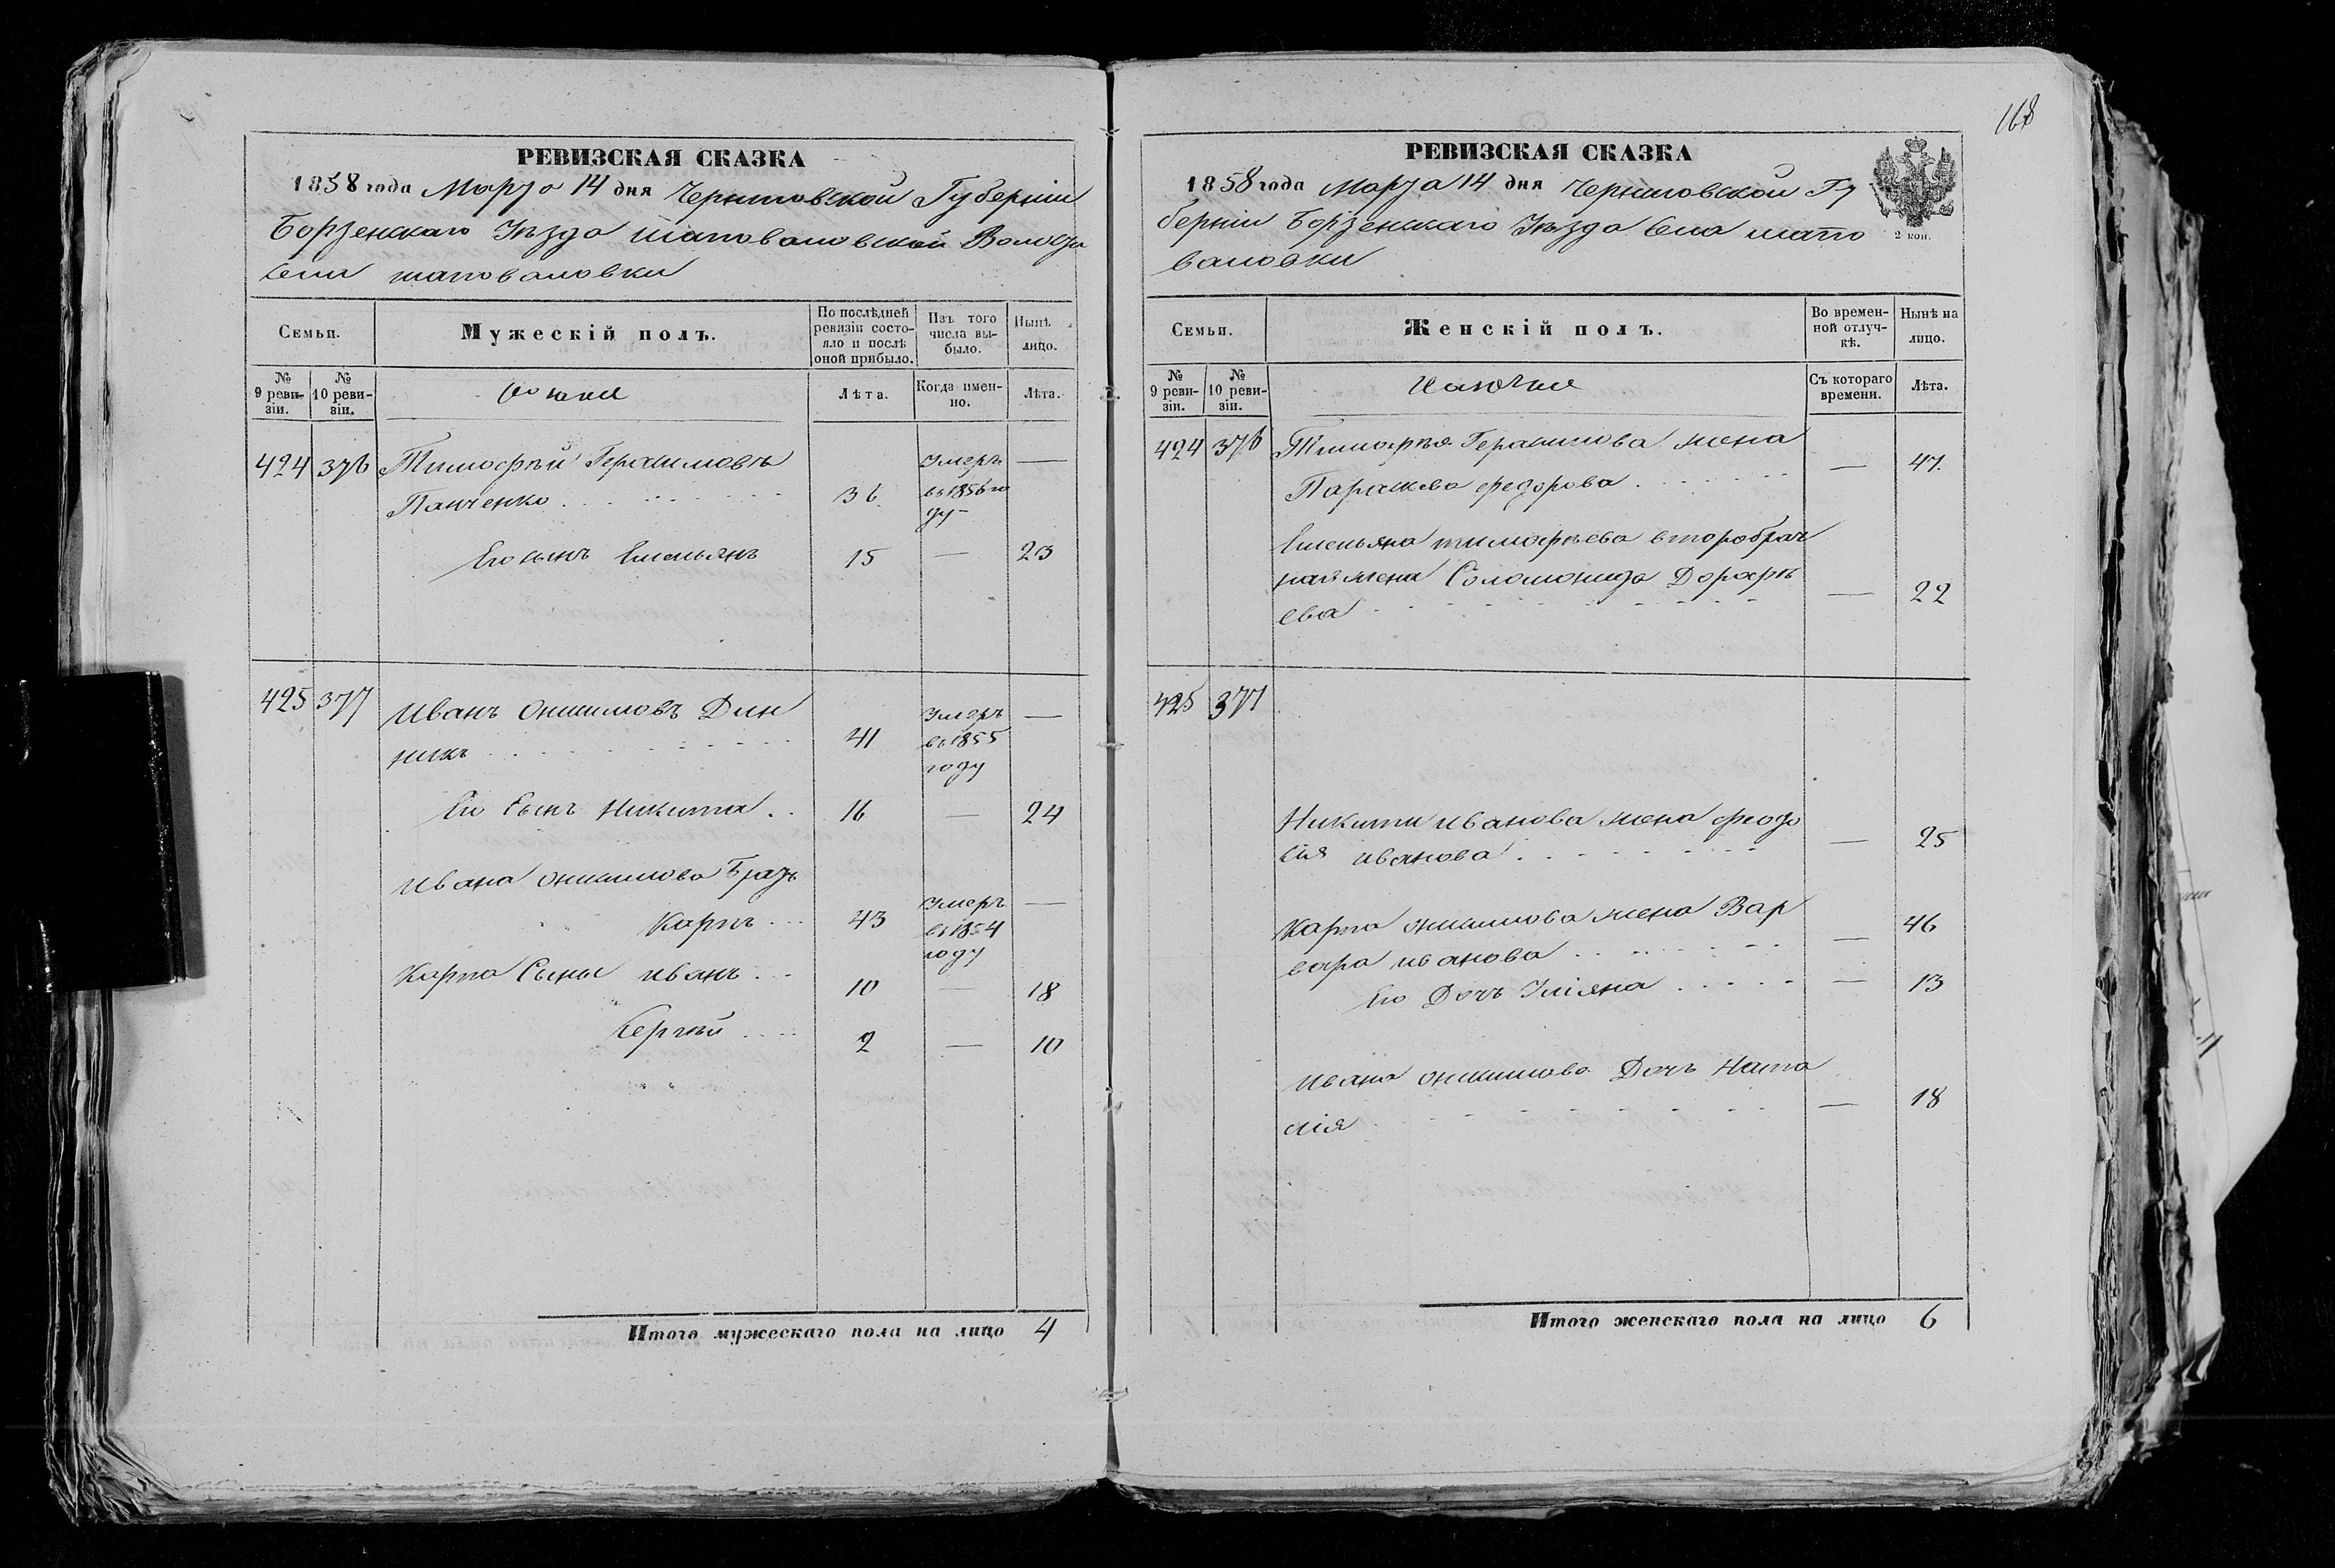 168
РЕВИЗСКАЯ СКАЗКА
1858 года Марта 14 дня Черниговской Губерніи
Борзенскаго Уѣзда Шаповаловской Волости
села шаповаловки
Семьи.
Мужескій полъ.
По послѣдней ревизіи состояло и послѣ оной прибыло.
Изъ того числа выбыло.
Нынѣ лицо.
№ 9 ревизіи.
№ 10 ревизіи.
Лѣта.
Когда именно.
Лѣта.
424 376 Тимофѣй Герасимовъ умеръ —
Панченко 36 въ 1856 го
ду
Его сынъ Емельянъ 15 — 23
425 377 Иванъ Онисимовъ Дин умеръ —
никъ 41 въ 1855
году
Его Сынъ Никита 16 — 24
Ивана Онисимова Братъ
Карпъ 43 умеръ —
въ 1854
году
Карпа Сыны иванъ 10 — 18
Сергѣй 2 — 10
Итого мужескаго пола на лицо 4
РЕВИЗСКАЯ СКАЗКА
1858 года Марта 14 дня Черниговской Гу
берніи Борзенскаго Уѣзда Села шапо
валовки
2 коп.
Семьи.
Женскій полъ.
Во временной отлучкѣ.
Нынѣ на лицо.
№ 9 ревизіи.
№ 10 ревизіи.
Съ котораго времени.
Лѣта.
424 376 Тимофѣя Герасимова жена
Параскева федорова — 47
Емельяна тимофѣева второбрач
ная жена Соломонида Дорофѣ
ева — 22
425 377
Никиты иванова жена феодо
сія иванова — 25
Карпа онисимова жена Вар
вара иванова — 46
Его Дочъ Уліяна — 13
Ивана онисимова Дочъ Ната
лія — 18
Итого женскаго пола на лицо 6